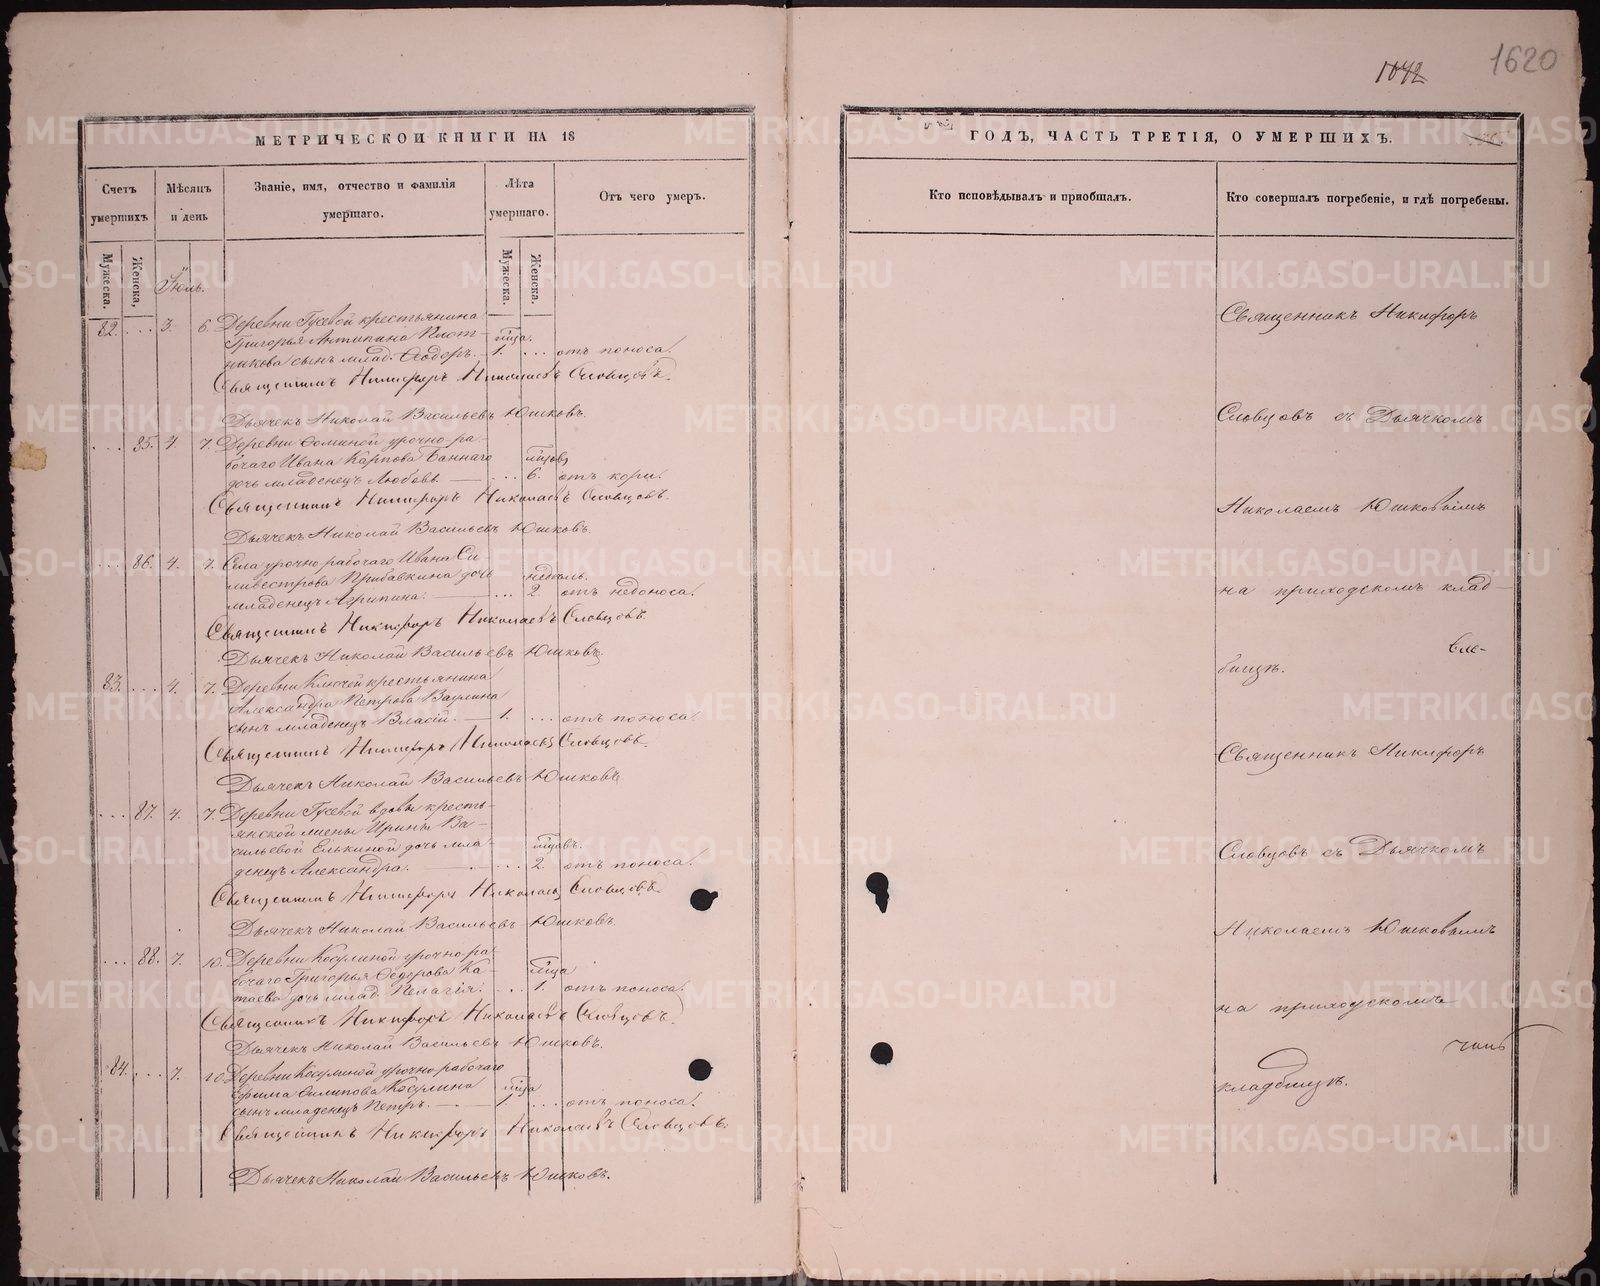 1042
1620
МЕТРИЧЕСКОЙ КНИГИ НА 18
Счетъ умершихъ
Мѣсяцъ и день
Званіе, имя, отчество и фамилія умершаго.
Лѣта умершаго.
Отъ чего умеръ.
Мужеска.
Женска,
Мужеска.
Женска.
Іюль.
82. ... 3. 6. Деревни Гусевой крестьянина
Григорья Антипина Плот- м҃ца.
никова сынъ млад. Ѳеодоръ. — 1. ... отъ поноса.
Священникъ Никифоръ Николаевъ Словцовъ.
Дьячекъ Николай Васильевъ Юшковъ.
... 85. 4. 7. Деревни Ѳоминой урочно-ра-
бочаго Ивана Карпова Баннаго м҃цовъ
дочь младенецъ Любовь. — ... 6. отъ кори.
Священникъ Никифоръ Николаевъ Словцовъ.
Дьячекъ Николай Васильевъ Юшковъ.
... 86. 4. 7. Села урочно рабочаго Ивана Си-
ливестрова Прибавкина дочь недѣль.
младенецъ Агрипина. — ... 2. отъ недоноса.
Священникъ Никифоръ Николаевъ Словцовъ.
Дьячекъ Николай Васильевъ Юшковъ.
83. ... 4. 7. Деревни Ключей крестьянина
Александра Петрова Ваулина
сынъ младенецъ Власій. — 1. ... отъ поноса.
Священникъ Никифоръ Николаевъ Словцовъ.
Дьячекъ Николай Васильевъ Юшковъ
... 87. 4. 7. Деревни Гусевой вдовы кресть-
янской жены Ирины Ва-
сильевой Елькиной дочь мла- м҃цовъ.
денецъ Александра. — ... 2. отъ поноса.
Священникъ Никифоръ Николаевъ Словцовъ.
Дьячекъ Николай Васильевъ Юшковъ.
... 88. 7. 10. Деревни Косулиной урочно-ра-
бочаго Григорья Ѳедорова Ка- м҃ца
таева дочь млад. Пелагія. ... 1. отъ поноса.
Священникъ Никифоръ Николаевъ Словцовъ.
Дьячекъ Николай Васильевъ Юшковъ.
84. ... 7. 10. Деревни Косулиной урочно рабочаго
Ефима Филипова Косулина м҃ца
сынъ младенецъ Петръ. — 1. ... отъ поноса.
Священникъ Никифоръ Николаевъ Словцовъ.
Дьячекъ Николай Васильевъ Юшковъ.
ГОДЪ, ЧАСТЬ ТРЕТІЯ, О УМЕРШИХЪ.
Кто исповѣдывалъ и пріобщалъ.
Кто совершалъ погребеніе, и гдѣ погребены.
Священникъ Никифоръ
Словцовъ съ Дьячкомъ
Николаемъ Юшковымъ
на приходскомъ клад-
бищѣ.
Священникъ Никифоръ
Словцовъ съ Дьячкомъ
Николаемъ Юшковымъ
на приходскомъ
кладбищѣ.
METRIKI.GASO-URAL.RU